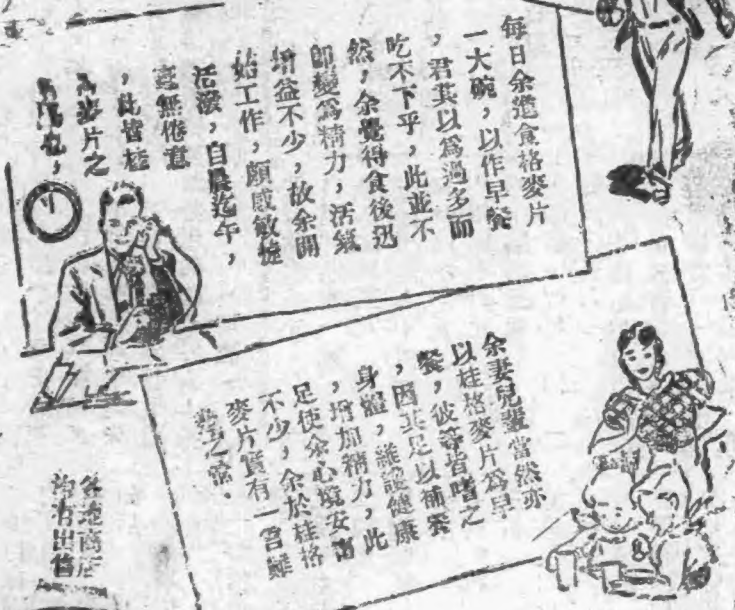 每日余進食格麥片
一大碗，以作早餐
，君其以為過多而
吃不下乎，此並不
然，余覺得食後迅
即變為精力，活氣
增益不少，故余開
始工作，頗感敏捷
活潑，自晨迄午，
毫無倦意
，此皆桂
格麥片之
余妻兒輩當然亦
以桂格麥片為早
餐，彼等皆嗜之
，因其足以補養
身體，維護健康
，增加精力，此
足使余心境安甯
不少，余於桂格
麥片實有一言難
盡之
各地商店
均有出售